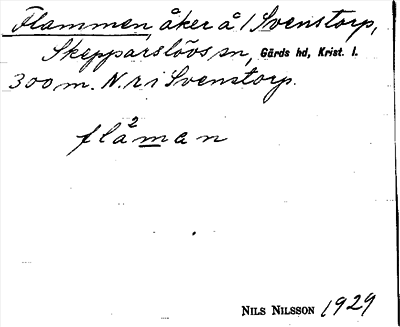 Flammen, åker å 1 Svenstorp,
Skepparslövs sn, Gärds hd, Krist. l.
300 m. N. r i Svenstorp.
flå²man
NILS NILSSON 1929